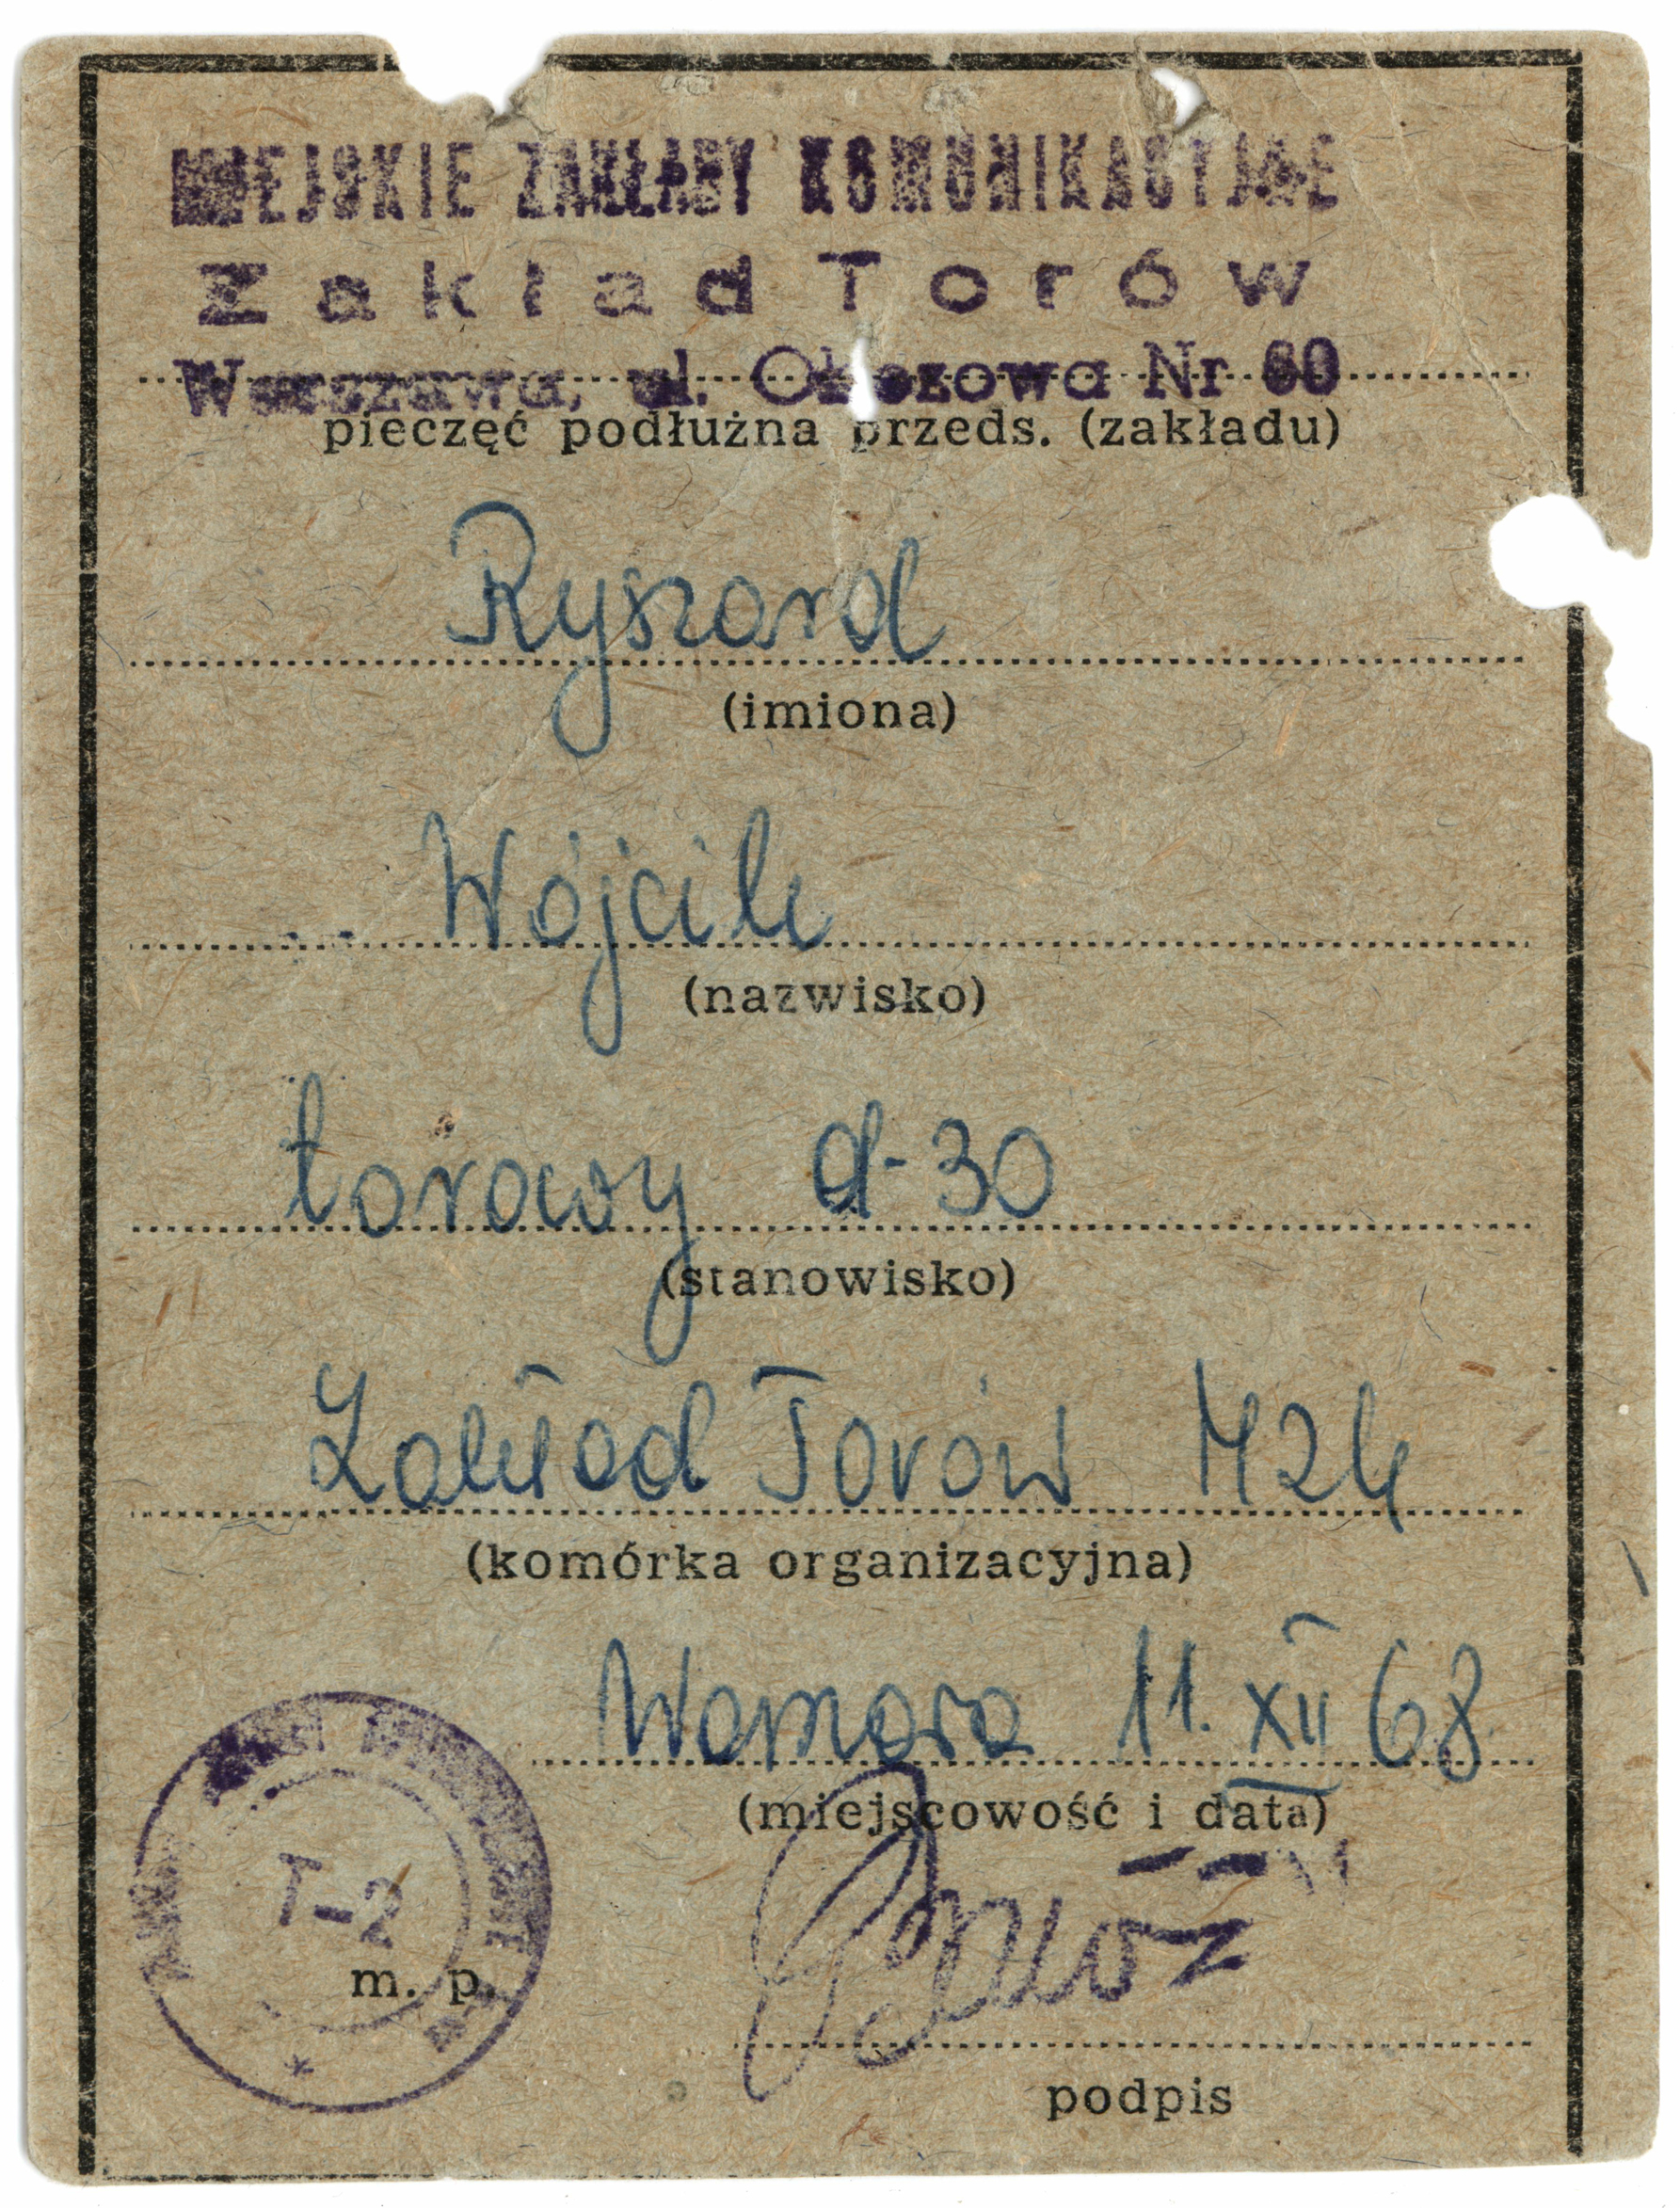 MIEJSKIE ZAKŁADY KOMUNIKACYJNE
Zakład Torów
Warszawa, ul. Okszowa Nr 60
pieczęć podłużna przeds. (zakładu)
Ryszard
(imiona)
Wójcik
(nazwisko)
torowy d-30
(stanowisko)
Zakład Torów MZK
(komórka organizacyjna)
Warszawa 11. XII 68
(miejscowość i data)
T-2
m. p.
podpis